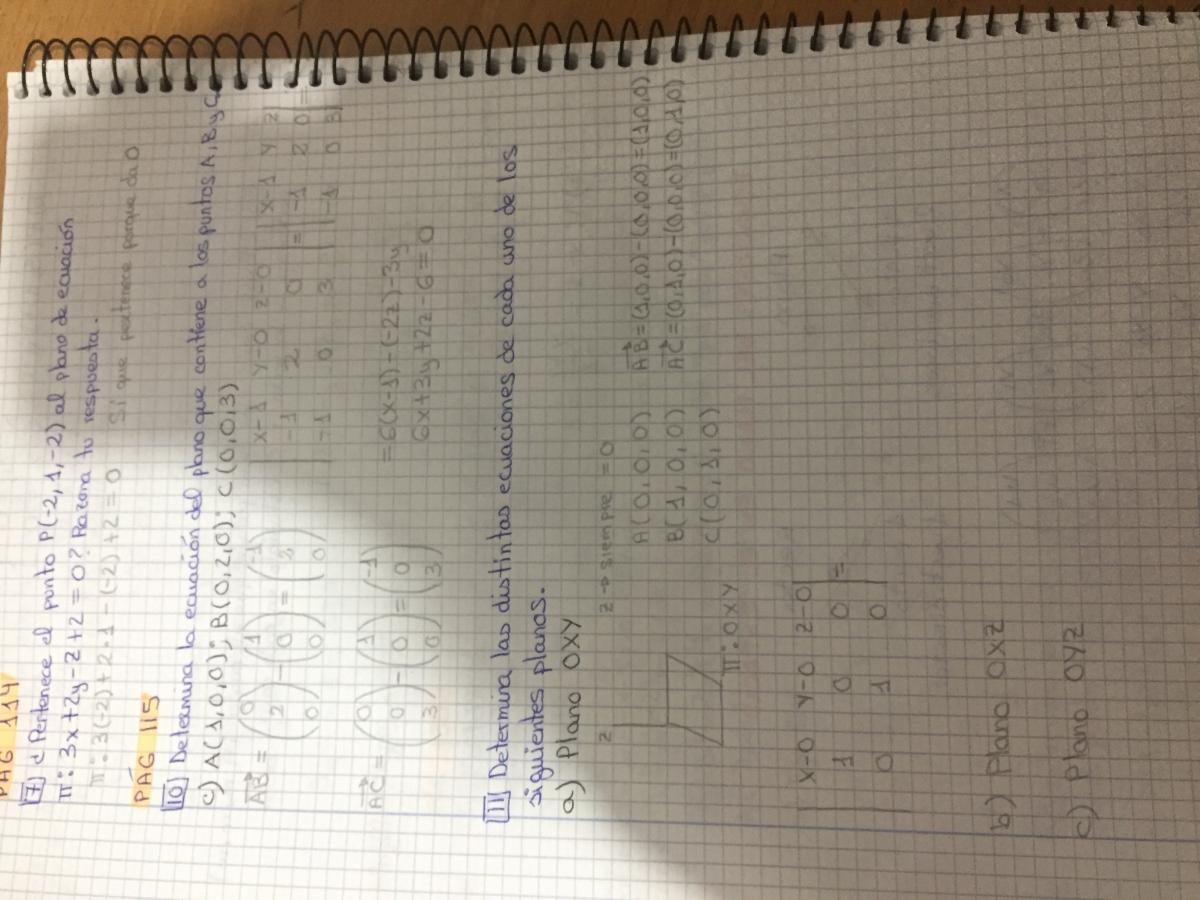 PÁG 114
7 ¿Pertenece el punto P(-2,1,-2) al plano de ecuación
π: 3x+2y-z+2=0? Razona tu respuesta.
π: 3(-2)+2·1-(-2)+2=0 Sí que pertenece porque da 0
PÁG 115
10 Determina la ecuación del plano que contiene a los puntos A, B y C
c) A(1,0,0); B(0,2,0); C(0,0,3)
AB = (0 2 0) - (1 0 0) = (-1 2 0)
|x-1 y-0 z-0| |x-1 y z|
|-1 2 0| = |-1 2 0| =
|-1 0 3| |-1 0 3|
AC = (0 0 3) - (1 0 0) = (-1 0 3)
= 6(x-1)-(-2z)-3y
6x+3y+2z-6=0
11 Determina las distintas ecuaciones de cada uno de los
siguientes planos.
a) Plano OXY
z z → siempre = 0
π: OXY
A(0,0,0) AB=(1,0,0)-(0,0,0)=(1,0,0)
B(1,0,0) AC=(0,1,0)-(0,0,0)=(0,1,0)
C(0,1,0)
|x-0 y-0 z-0|
|1 0 0| =
|0 1 0|
b) Plano OXZ
c) Plano OYZ